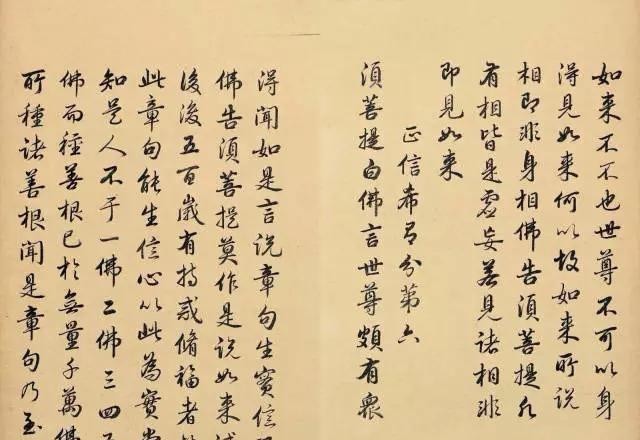 如来不不也世尊不可以身
得見如来何以故如来所說
相即非身相佛告須菩提凡
有相皆是虛妄若見諸相非
即見如来
正信希有分第六
須菩提白佛言世尊頗有眾
得聞如是言說章句生實信
佛告須菩提莫作是說如来
後後五百歲有持戒脩福者
此章句能生信心以此為實當
知是人不于一佛二佛三四
佛而種善根已於無量千萬佛
所種諸善根聞是章句乃至